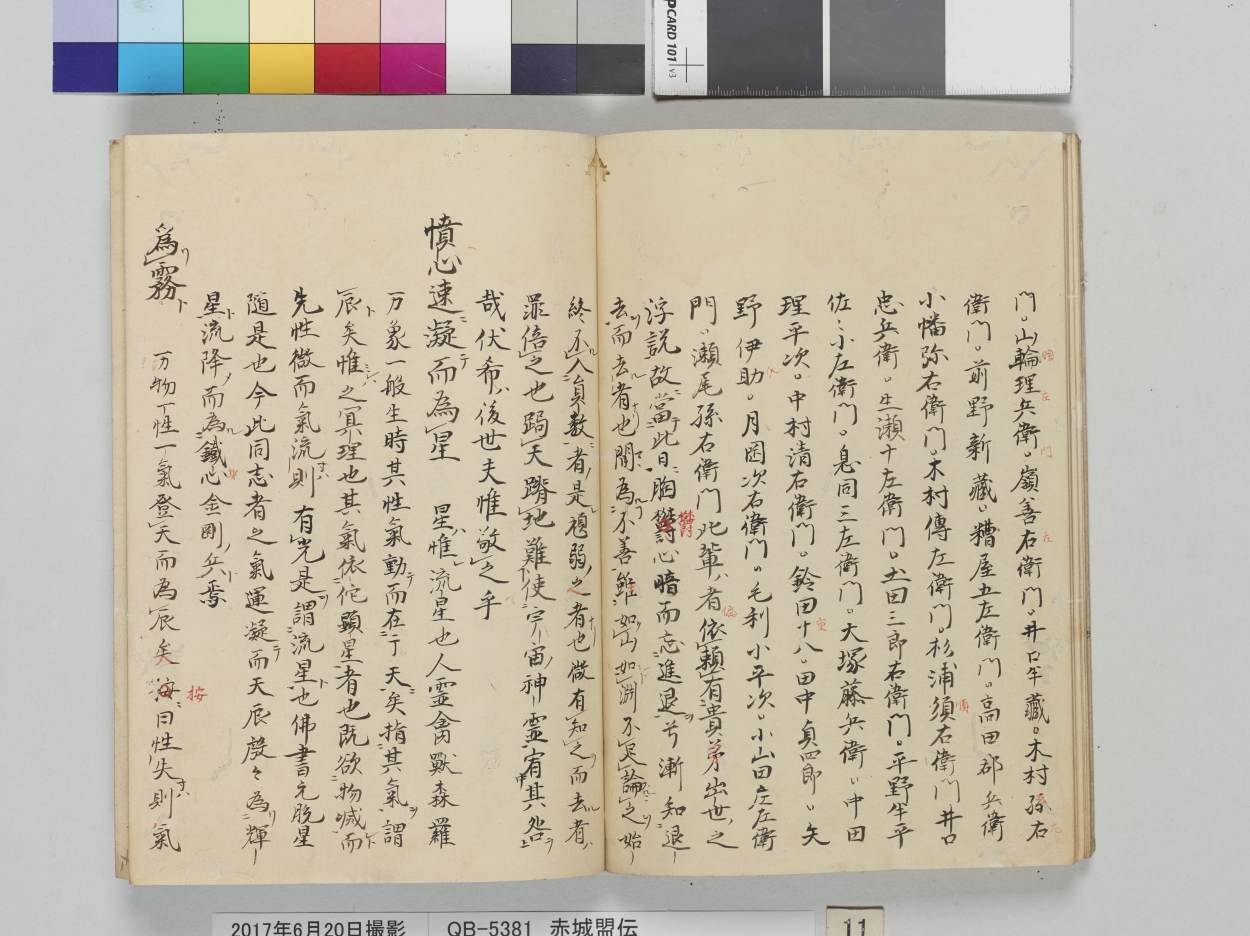 門。山輪理兵衛。嶺善右衛門。井口半藏。木村孫右
衛門。前野新藏。糟屋五左衛門。高田郡兵衛
小幡弥右衛門。木村傳左衛門。杉浦須右衛門井口
忠兵衛。生瀬十左衛門。土田三郎右衛門。平野半平
佐々小左衛門。息同三左衛門。大塚藤兵衛。中田
理平次。中村清右衛門。鈴田十八。田中貞四郎。矢
野伊助。月岡次右衛門。毛利小平次。小山田庄左衛
門。瀬尾孫右衛門此輩者依頼有貴弟出世之
浮説故當此日胸欝心暗而忘進退兮漸知退
去而去者也聞為不善雖如山如淵不足論之始
終不入員数者是極弱之者也微有知之而去者
罪倍之也跼天蹐地難使宇宙神霊宥其咎
哉伏希後世夫惟敬之乎
憤心速凝而為星 星惟流星也人霊禽獸森羅
万象一般生時其性氣動而在于天矣指其氣謂
辰矣惟之冥理也其氣依佗顕星者也既欲物滅而
先性微而氣流則有光是謂流星也佛書云脱星
随是也今此同志者之氣運凝而天辰發々為輝
星流降而為鐵心金剛兵焉
為霧 万物一性一氣登天而為辰矣 按 海曰性失則氣
PCARD 101 v3
2017年6月20日撮影 QB-5381 赤城盟伝
11